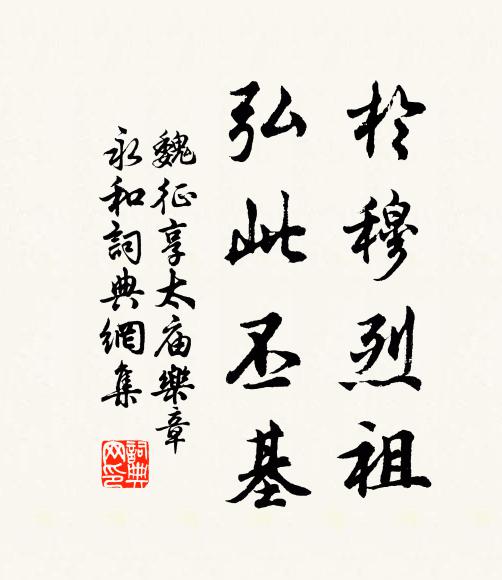 於穆烈祖
弘此丕基
魏征享太庙樂章
永和詞典網集
詞典网印